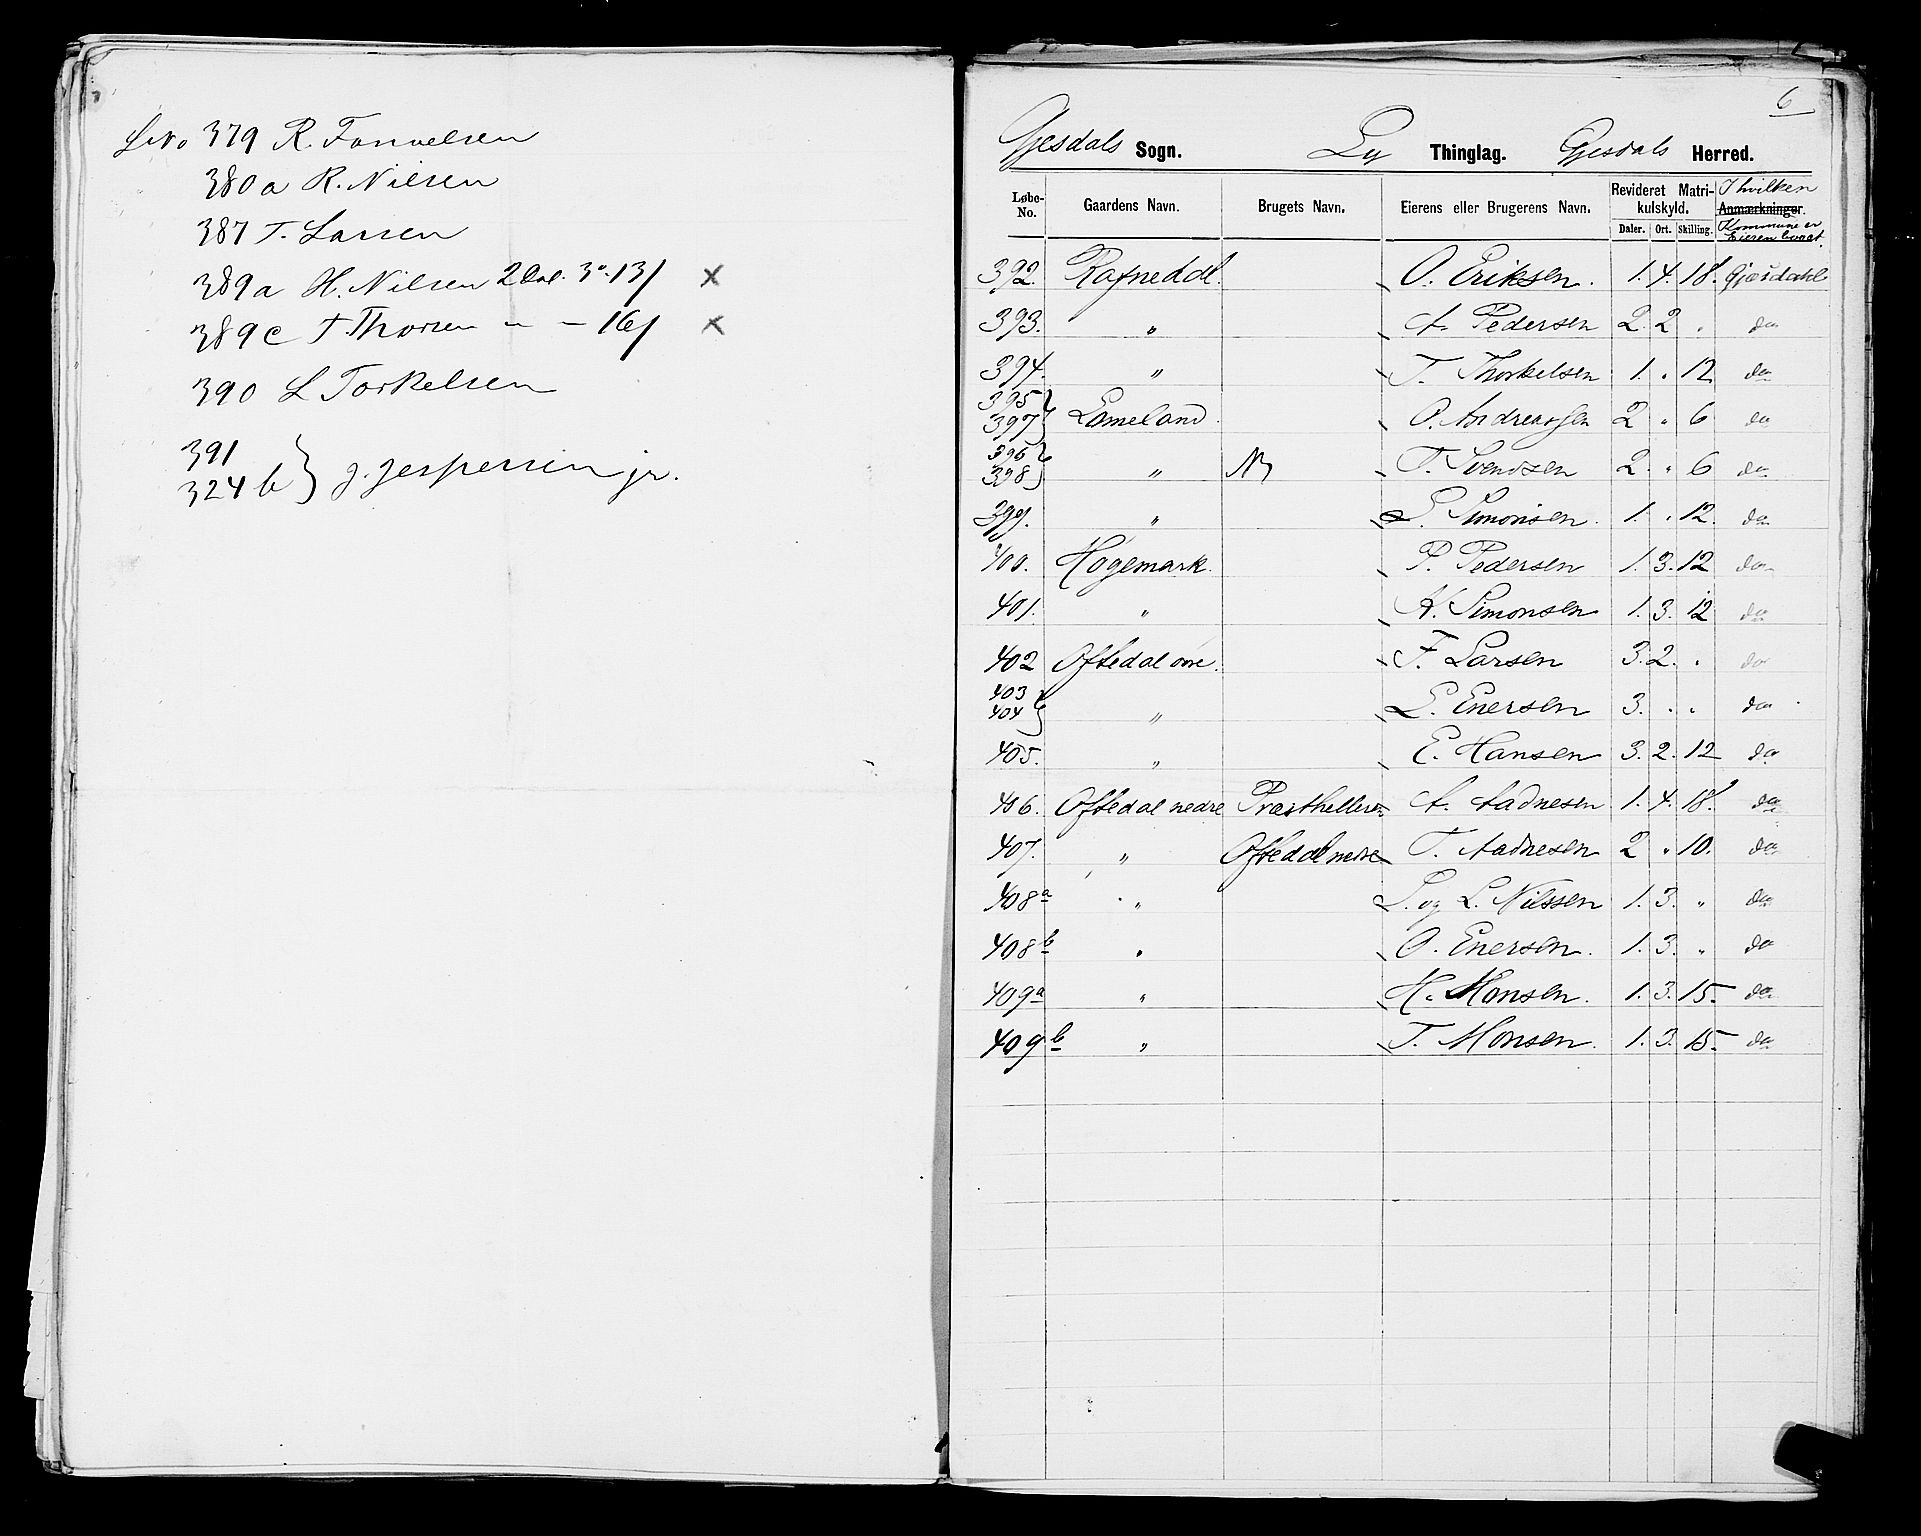 379 R.
380 a R. Nilsen
387 T. Larsen
389a H. Nilsen 2 Dal. 3 " 13/ x
389c T. Thorsen " - 16/ x
390 L Torkelsen
391
324 b } J. Jespersen jr.
6
Gjesdals Sogn. Ly Thinglag. Gjesdals Herred.
Løbe-No. Gaardens Navn. Brugets Navn. Eierens eller Brugerens Navn. Revideret Matrikulskyld. I hvilken Anmærkninger. Kommune er Eieren boeat.
Daler. Ort. Skilling.
392. Ragnedal. O. Eriksen. 1. 4. 18. Gjesdahl
393. " A. Pedersen 2. 2 " do
394. " T. Thorkelsen 1. " 12 do
395
397 } Lameland. O. Andreassen 2 " 6 do
396
398 } " T. Svendsen 2. " 6 do
399. " S. Simonsen. 1. " 12. do
400. Høgemark. P. Pedersen 1. 3. 12 do
401. " A. Simonsen 1. 3. 12 do
402 Oftedal øvre. F. Larsen 3. 2. " do
403
404 } " L. Enersen 3. " " do
405. " E. Hansen 3. 2. 12 do
406. Oftedal nedre Præsthelleren A. Aadnesen 1. 4. 18. do
407. " Oftedal nedre T. Aadnesen 2 " 10. do
408a " S. og L. Nilssen 1. 3. " do
408b " O. Enersen. 1. 3. " do
409a " H. Monsen. 1. 3. 15. do
409b " T. Monsen. 1. 3. 15. do